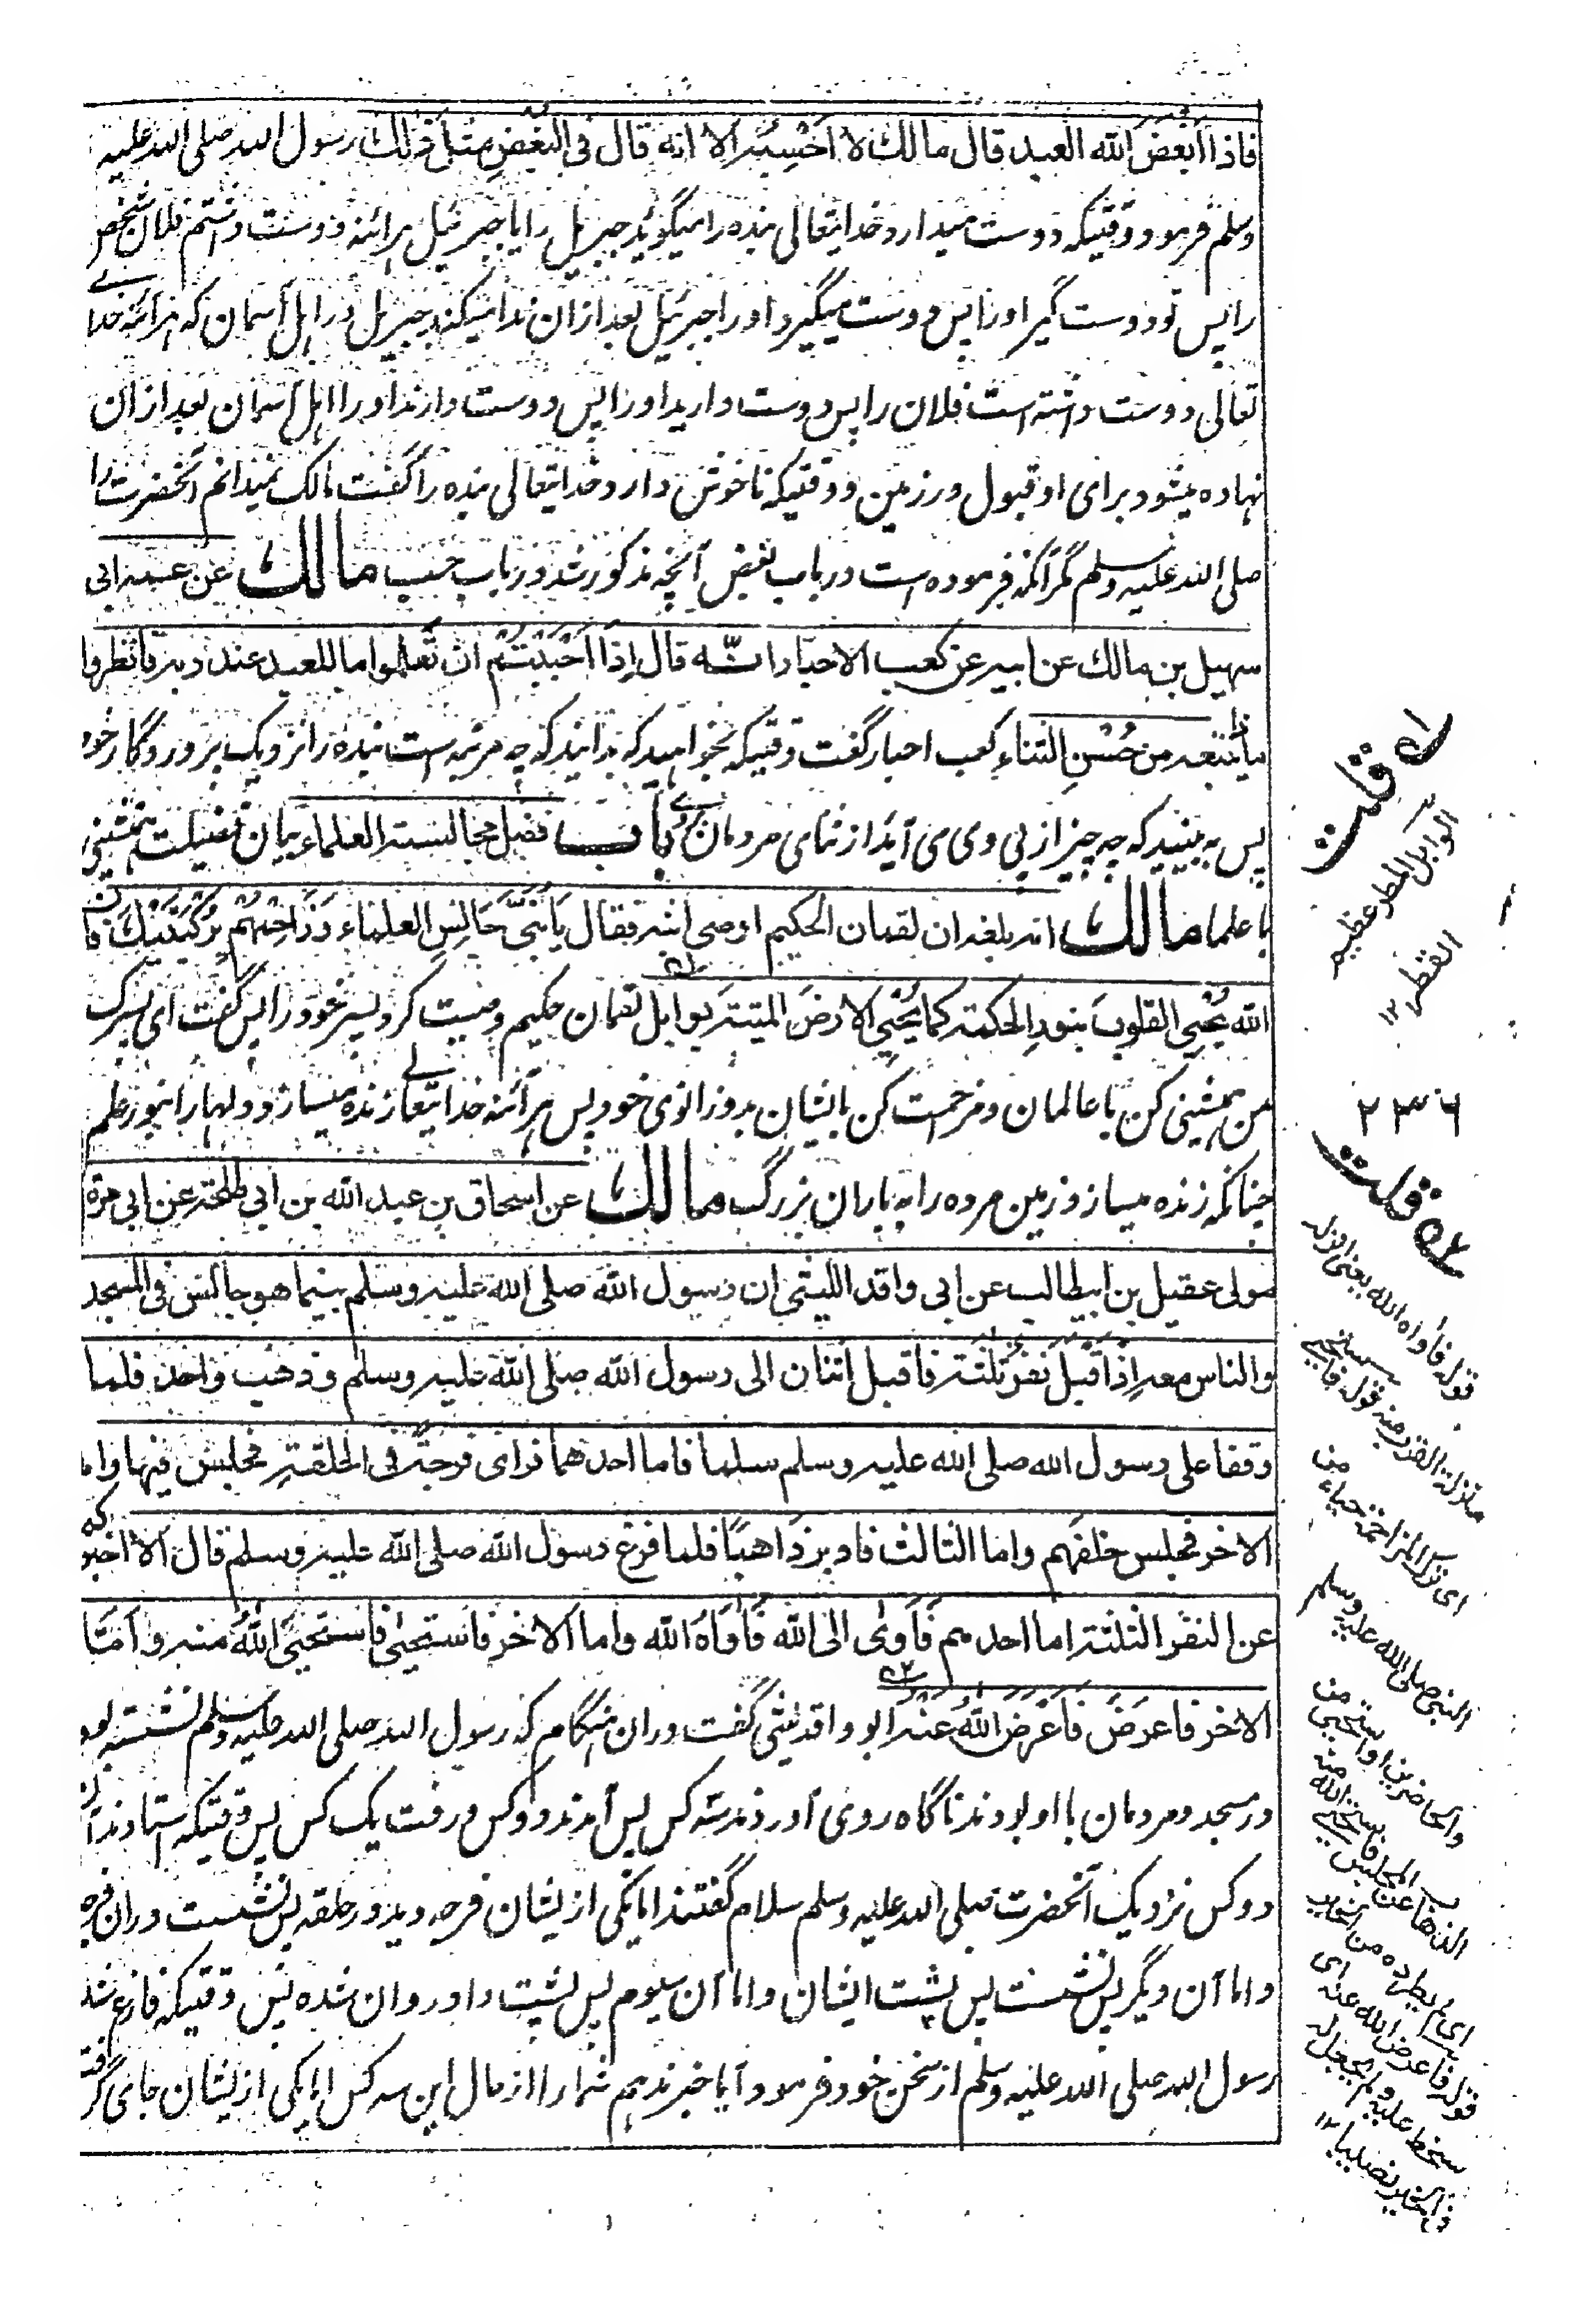 فاذا ابغض الله العبد قال مالك لا احسبه الا انه قال فى البغض مثل ذلك رسول الله صلى الله عليه
وسلم فرمود وقتيكه دوست ميدارد خدايتعالى بنده را ميگويد جبريل را يا جبرئيل هرآئنه دوست داشتم فلان شخص
را پس تو دوست گير اورا پس دوست ميگيرد اورا جبرئيل بعد ازان ندا ميكند جبريل در اهل آسمان كه هرآئنه خداے
تعالى دوست داشته است فلان را پس دوست داريد اورا پس دوست دارند اورا اهل آسمان بعد ازان
نهاده ميشود براى او قبول در زمين ووقتيكه ناخوش دارد خدايتعالى بنده را گفت مالك نميدانم آنحضرت را
صلى الله عليه وسلم مگر آنكه فرموده است در باب بغض آنچه مذكور شد در باب حب مالك عن عمه ابى
سهيل بن مالك عن ابيه عن كعب الاحبار انه قال اذا احببتم ان تعلموا ما للعبد عند ربه فانظروا
ماذا يتبعه من حسن الثناء كعب احبار گفت وقتيكه بخواهيد كه بدانيد كه چه مرتبه است بنده را نزديك پروردگار خود
پس به بينيد كه چه چيز از پى وى مى آيد از ثناى مردمان باب فضل مجالسة العلماء بيان فضيلت همنشينى
با علما مالك انه بلغه ان لقمان الحكيم اوصى ابنه فقال يا بنى جالس العلماء وزاحمهم بركبتيك فان
الله يحيى القلوب بنور الحكمة كما يحيى الارض الميتة بوابل لقمان حكيم وصيت كرد پسر خود را پس گفت اى پسرك
من همنشينى كن با عالمان ومزاحمت كن بايشان بدو زانوى خود پس هرآئنه خدايتعالے زنده ميسازد دلهارا بنور علم
چنانكه زنده ميسازد زمين مرده را به باران بزرگ مالك عن اسحاق بن عبد الله بن ابى طلحة عن ابى مرة
مولى عقيل بن ابيطالب عن ابى واقد الليثى ان رسول الله صلى الله عليه وسلم بينما هو جالس فى المسجد
والناس معه اذ اقبل نفر ثلثة فاقبل اثنان الى رسول الله صلى الله عليه وسلم وذهب واحد فلما
وقفا على رسول الله صلى الله عليه وسلم سلما فاما احدهما فراى فرجة فى الحلقة فجلس فيها واما
الاخر فجلس خلفهم واما الثالث فادبر ذاهبا فلما فرغ رسول الله صلى الله عليه وسلم قال الا اخبركم
عن النفر الثلثة اما احدهم فاوى الى الله فاواه الله واما الاخر فاستحيى فاستحيى الله منه واما
الاخر فاعرض فاعرض الله عنه ابو واقد ليثى گفت دران هنگام كه رسول الله صلى الله عليه وسلم نشسته بود
در مسجد ومردمان با او بودند ناگاه روى آوردند سه كس پس آمدند دو كس ورفت يك كس پس وقتيكه استادند آن
دو كس نزديك آنحضرت صلى الله عليه وسلم سلام گفتند اما يكى از ايشان فرجه ديد در حلقه پس نشست دران فرجه
واما آن ديگر پس نشست پس پشت ايشان واما آن سيوم پس پشت داد روان شده پس وقتيكه فارغ شد
رسول الله صلى الله عليه وسلم از سخن خود فرمود آيا خبر ندهم شمارا از حال اين سه كس اما يكى از ايشان جاى گرفت
قلت
الوابل المطر عظيم
القطر ١٢
٢٣٦
قلت
قوله فاواه الله يعنى انزله
منزلة القرب منه قوله فاستحيى
اى ترك المزاحمة حياء من
النبى صلى الله عليه وسلم
والحاضرين او استحيى من
الذهاب عن المجلس فاستحيى الله منه
اى لم يطرده من
قوله فاعرض الله عنه اى
سخط عليه ولم يجعل له
نصيبا ١٢